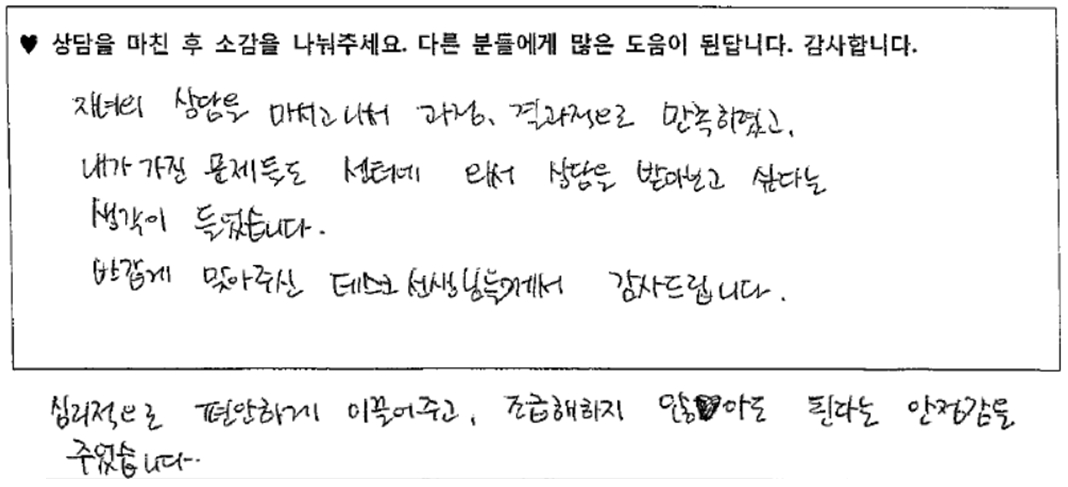 ♥ 상담을 마친 후 소감을 나눠주세요. 다른 분들에게 많은 도움이 된답니다. 감사합니다.
자녀의 상담을 마치고나서 과정, 결과적으로 만족하였고,
내가 가진 문제들도 센터에 와서 상담을 받아보고 싶다는
생각이 들었습니다.
반갑게 맞아주신 데스크 선생님들께서 감사드립니다.
심리적으로 편안하게 이끌어주고, 조급해하지 않아도 된다는 안정감을
주었습니다.